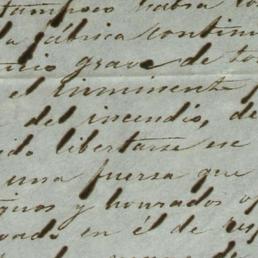 tampoco habia
la fábrica continu
grave de to
el inminente
del incendio, de
ido libertarse ese
una fuerza que
y honrados op
en él de res